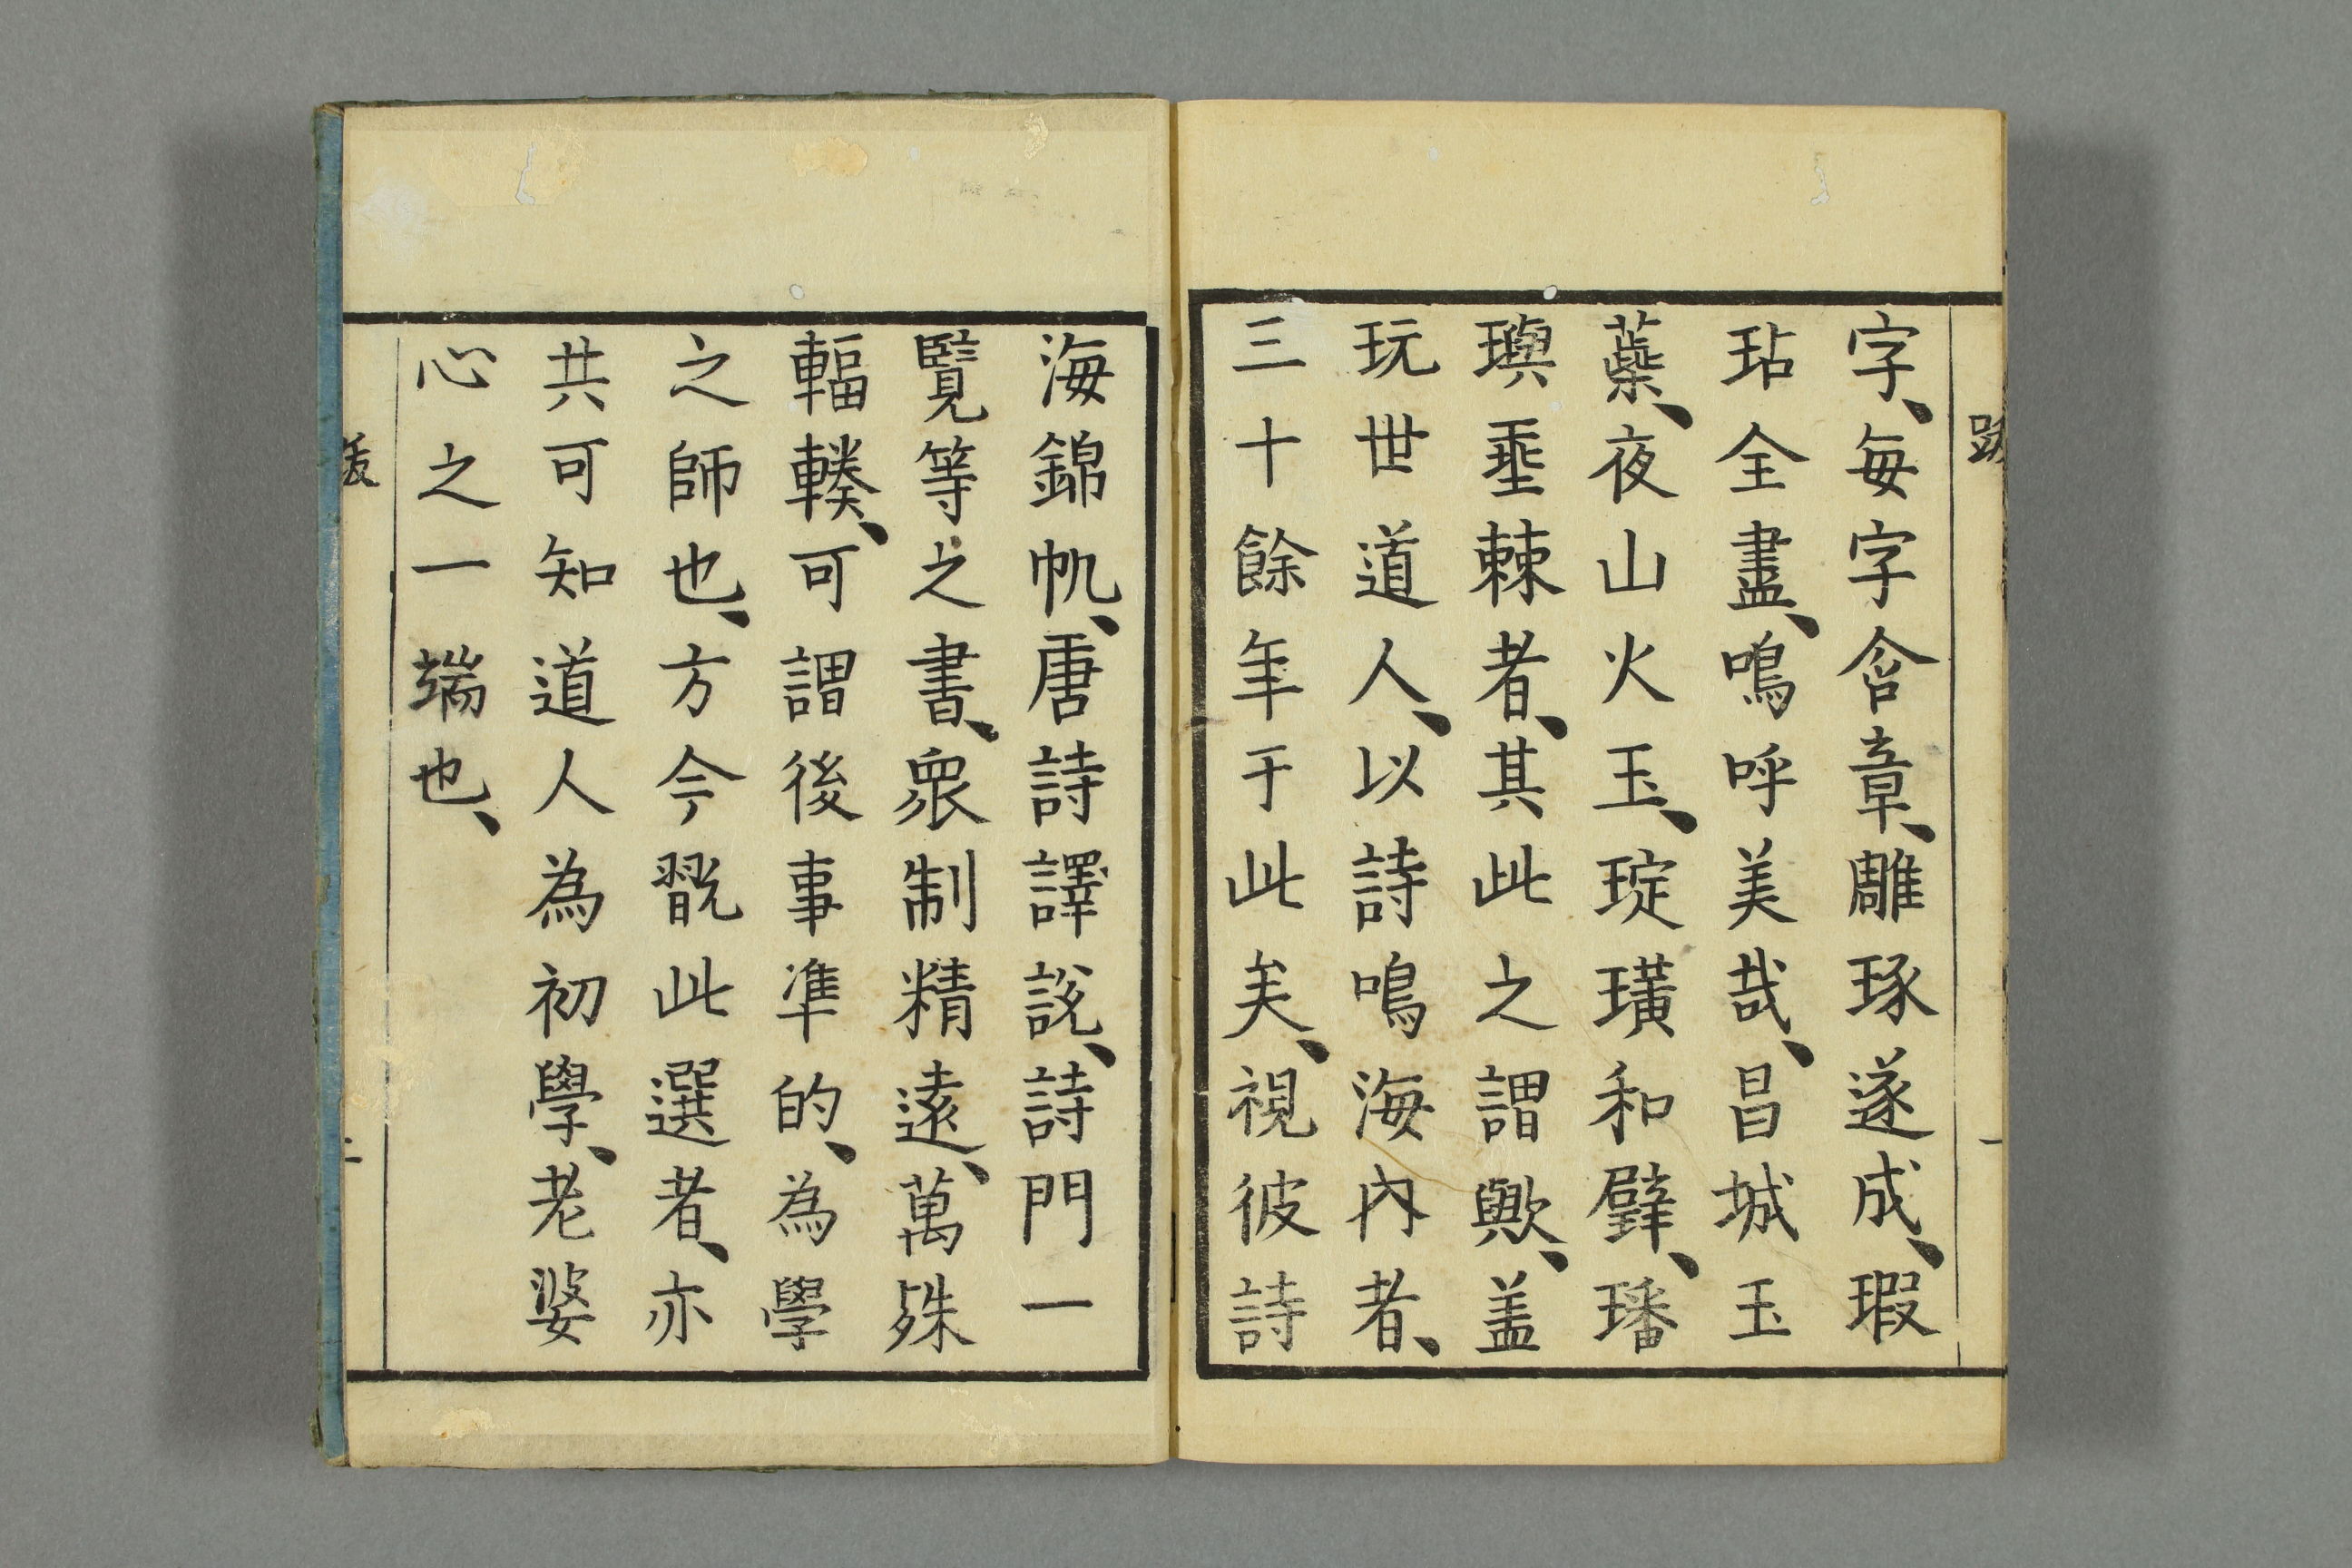 跋
一
字、每字含章、雕琢遂成、瑕
玷全盡、嗚呼美哉、昌城玉
蘂、夜山火玉、琁璜和璧、璠
璵垂棘者、其此之謂歟、盖
玩世道人、以詩鳴海內者、
三十餘年于此矣、視彼詩
海錦帆、唐詩譯說、詩門一
覽等之書、衆制精遠、萬殊
輻輳、可謂後事凖的、為學
之師也、方今翫此選者、亦
共可知道人為初學、老婆
心之一端也、
跋
二